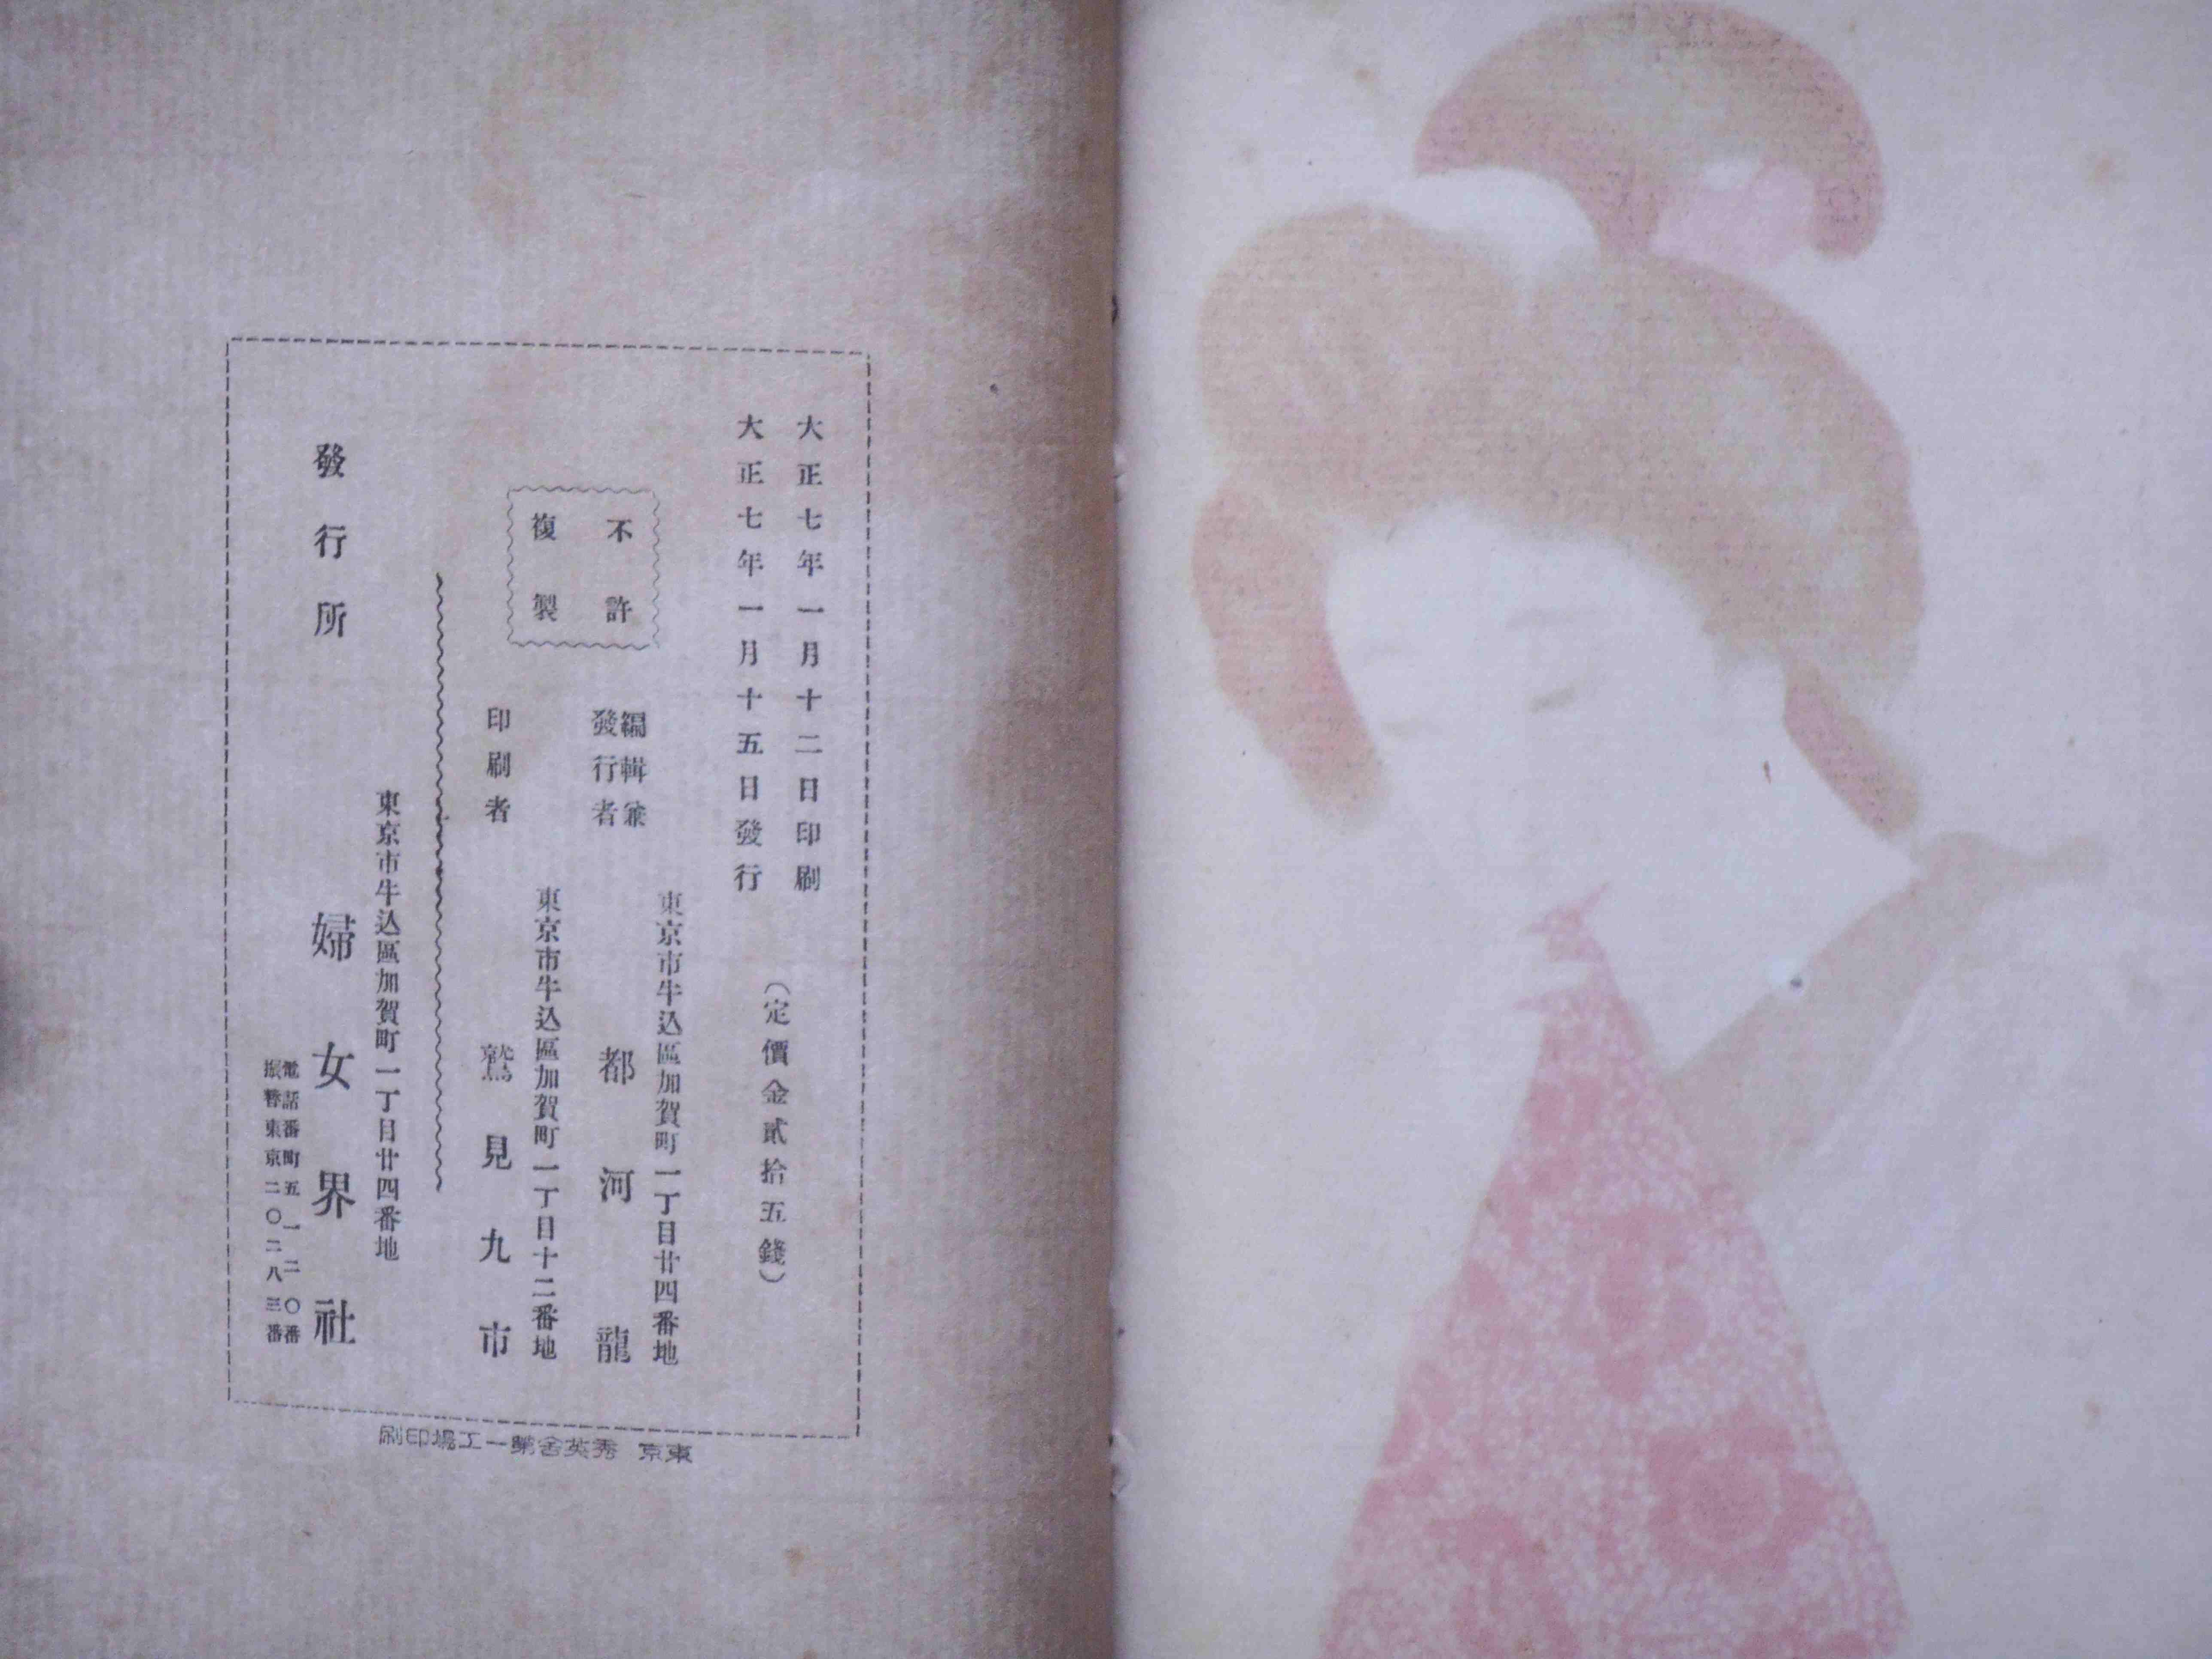 大正七年一月十二日印刷
大正七年一月十五日發行
（定價金貳拾五錢）
不許
復製
編輯兼
發行者
東京市牛込區加賀町一丁目廿四番地
都河龍
印刷者
東京市牛込區加賀町一丁目十二番地
鷲見九市
發行所
東京市牛込區加賀町一丁目廿四番地
婦女界社
電話番町五一二〇番
振替東京二〇二八三番
東京 秀英舍第一工場印刷